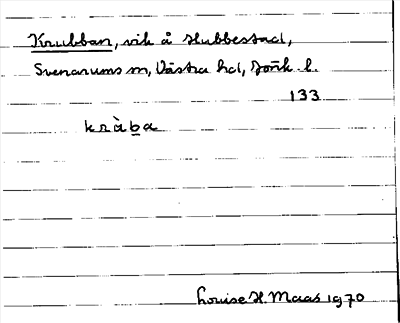 Krubban, vik å Hubbestad,
Svenarums sn, Västra hd, Jönk. l.
133
kràba
Louise H. Maas 1970